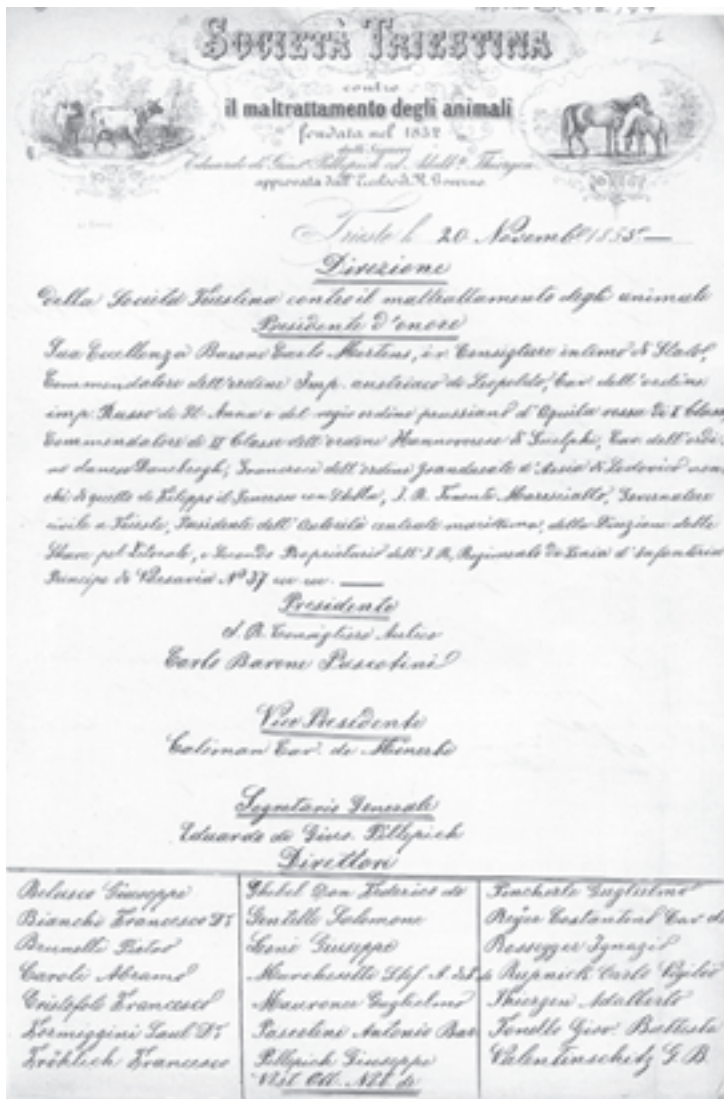 SOCIETÀ TRIESTINA
contro
il maltrattamento degli animali
fondata nel 1852
dalli Signori
Eduardo di Gius. Pillepich ed Adalb.
approvata dall' R. Governo
Trieste li 20 Novemb. 1855
Direzione
della Società Triestina contro il maltrattamento degli animali
Presidente d'onore
Sua Eccellenza Barone Carlo Mertens, i. r. Consigliere intimo di Stato,
Commendatore dell'ordine Imp. austriaco di Leopoldo, Cav. dell'ordine
imp. Russo di St. Anna e del regio ordine prussiano d'Aquila rossa di I Classe,
Commendatore di II Classe dell'ordine Hannoverese di Guelphi, Cav. dell'ordi
no danese ; dell'ordine d'Assia di Lodovico non
chè di quello di Filippo il Generoso con Stella, I. R. Tenente Maresciallo, Governatore
civile a Trieste, Presidente dell'Autorità centrale marittima, della Direzione delle
pel Litorale, e Secondo Proprietario dell'I. R. Reggimento di Linia d'Infanteria
Principe di Nº 37
Presidente
I. R. Consigliere Aulico
Carlo Barone Pascotini
Vice Presidente
Caliman Cav. de Minerbi
Segretario Generale
Eduardo di Gius. Pillepich
Direttori
Belusco Giuseppe
Bianchi Francesco Dr
Brunelli Pietro
Caroli Abramo
Cristofoli Francesco
Formiggini Saul Dr
Fröhlich Francesco
Don Federico de
Gentille Salomone
Giuseppe
Marchesetti
Mauroner Guglielmo
Pascotini Antonio Bar
Pillepich Giuseppe
Pincherle Guglielmo
Reyer Costantino Cav de
Rossegger Ignazio
Rupnick Carlo Vigilio
Thiergen Adalberto
Tonello Giov. Battista
Valentinschitz G B